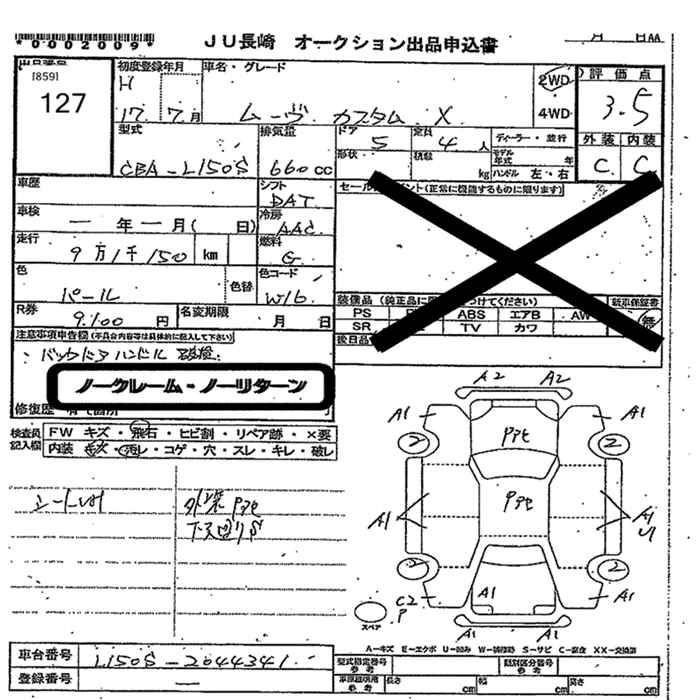 *0002009*
JU長崎 オークション出品申込書
月 日AA
出品番号
[859]
127
初度登録年月
H
17. 7月
車名・グレード
ムーヴ カスタム X
2WD
4WD
評価点
3.5
外装 内装
C C
型式
CBA-L150S
排気量
660cc
ドア
5
定員
4人
ディーラー・並行
形状
積載
kg
モデル年式 年
ハンドル 左・右
車歴
シフト
DAT
車検
年 月( 日)
冷房
AAC
走行
9万1千150 km
燃料
G
色
パール
色替
色コード
W16
R券
9.100円
名変期限
月 日
(正常に機能するものに限ります)
装備品
つけてください)
新車保証書
無
PS
ABS
エアB
AW
SR
TV
カワ
後日品
注意事項申告欄(不具合内容等は具体的に記入して下さい)
バックドアハンドル
ノークレーム・ノーリターン
修復歴
検査員記入欄
FW キズ・飛石・ヒビ割・リペア跡・×要
内装 キズ・汚レ・コゲ・穴・スレ・キレ・破レ
外装
下廻りS
A2 A2
A1 A1
2 2
A1 A1
2 2
A1 A1
A1
C2
P
スペア
A1
A-キズ E-エクボ U-凹み W-補修跡 S-サビ C-腐食 XX-交換済
車台番号
L150S-2044341
登録番号
型式指定番号
参考
類別区分番号
参考
長さ cm
幅 cm
高さ cm